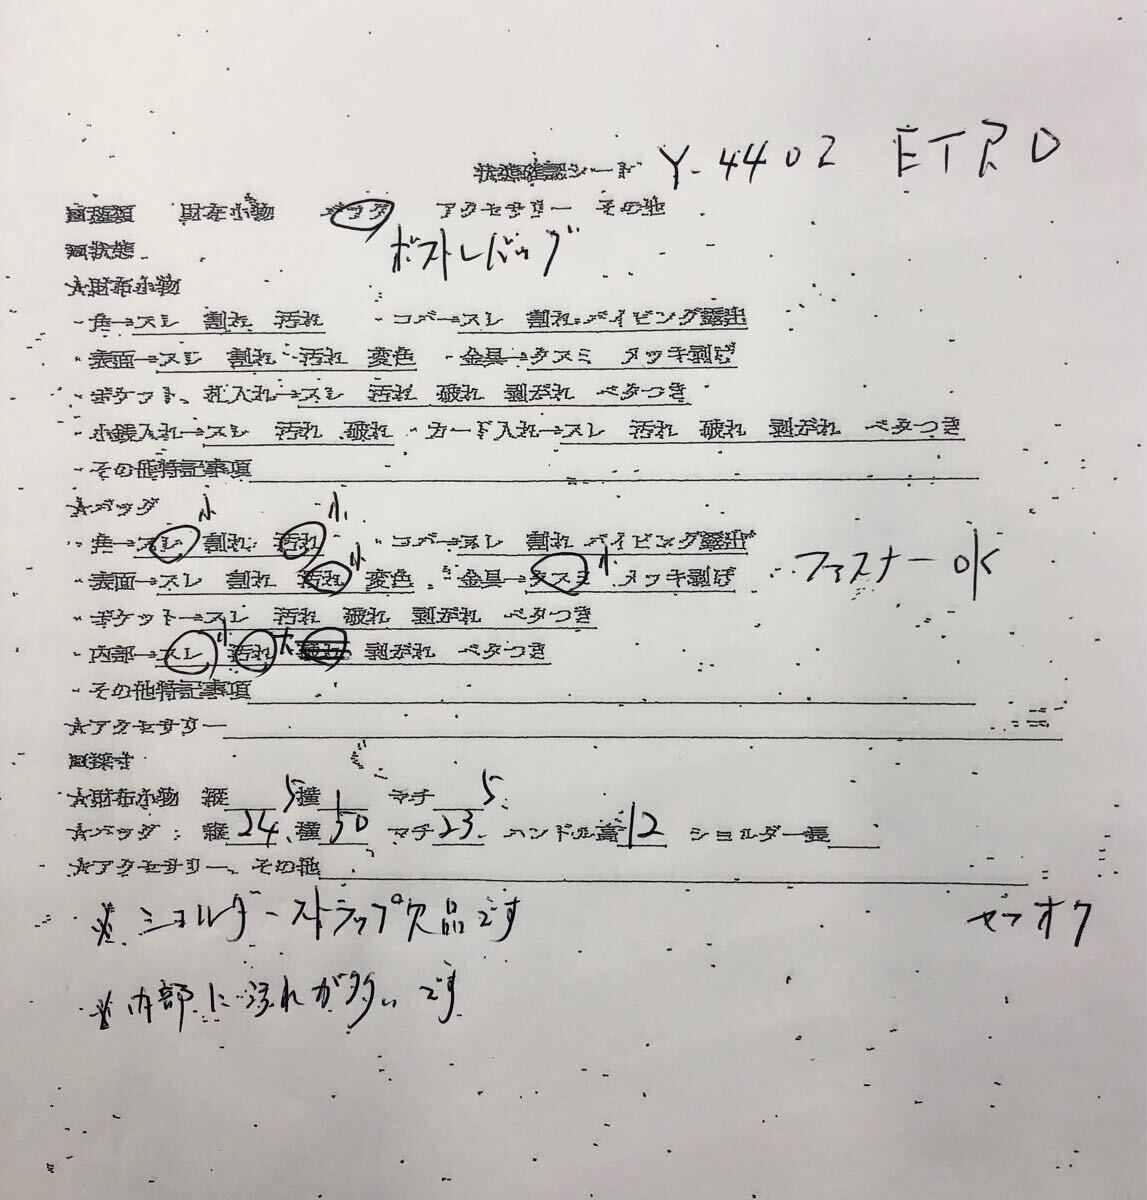 状態確認シート Y-4402 ETRO
■種類 財布小物 バッグ アクセサリー その他
ボストンバッグ
■状態
★財布小物
・角→スレ 割れ 汚れ ・コバ→スレ 割れ パイピング露出
・表面→スレ 割れ 汚れ 変色 ・金具→クスミ メッキ剥げ
・ポケット、札入れ→スレ 汚れ 破れ 剥がれ ベタつき
・小銭入れ→スレ 汚れ 破れ ・カード入れ→スレ 汚れ 破れ 剥がれ ベタつき
・その他特記事項
★バッグ
小 小
・角→スレ 割れ 汚れ ・コバ→スレ 割れ パイピング露出
・表面→スレ 割れ 汚れ 小 変色 ・金具→クスミ 小 メッキ剥げ ファスナーOK
・ポケット→スレ 汚れ 破れ 剥がれ ベタつき
・内部→スレ 小 汚れ 大 剥がれ ベタつき
・その他特記事項
★アクセサリー
■採寸
★財布小物 縦 横 マチ
★バッグ:縦 24.5 横 50 マチ 23.5 ハンドル高 12 ショルダー長
★アクセサリー、その他
※ショルダーストラップ欠品です ヤフオク
※内部に汚れが多いです